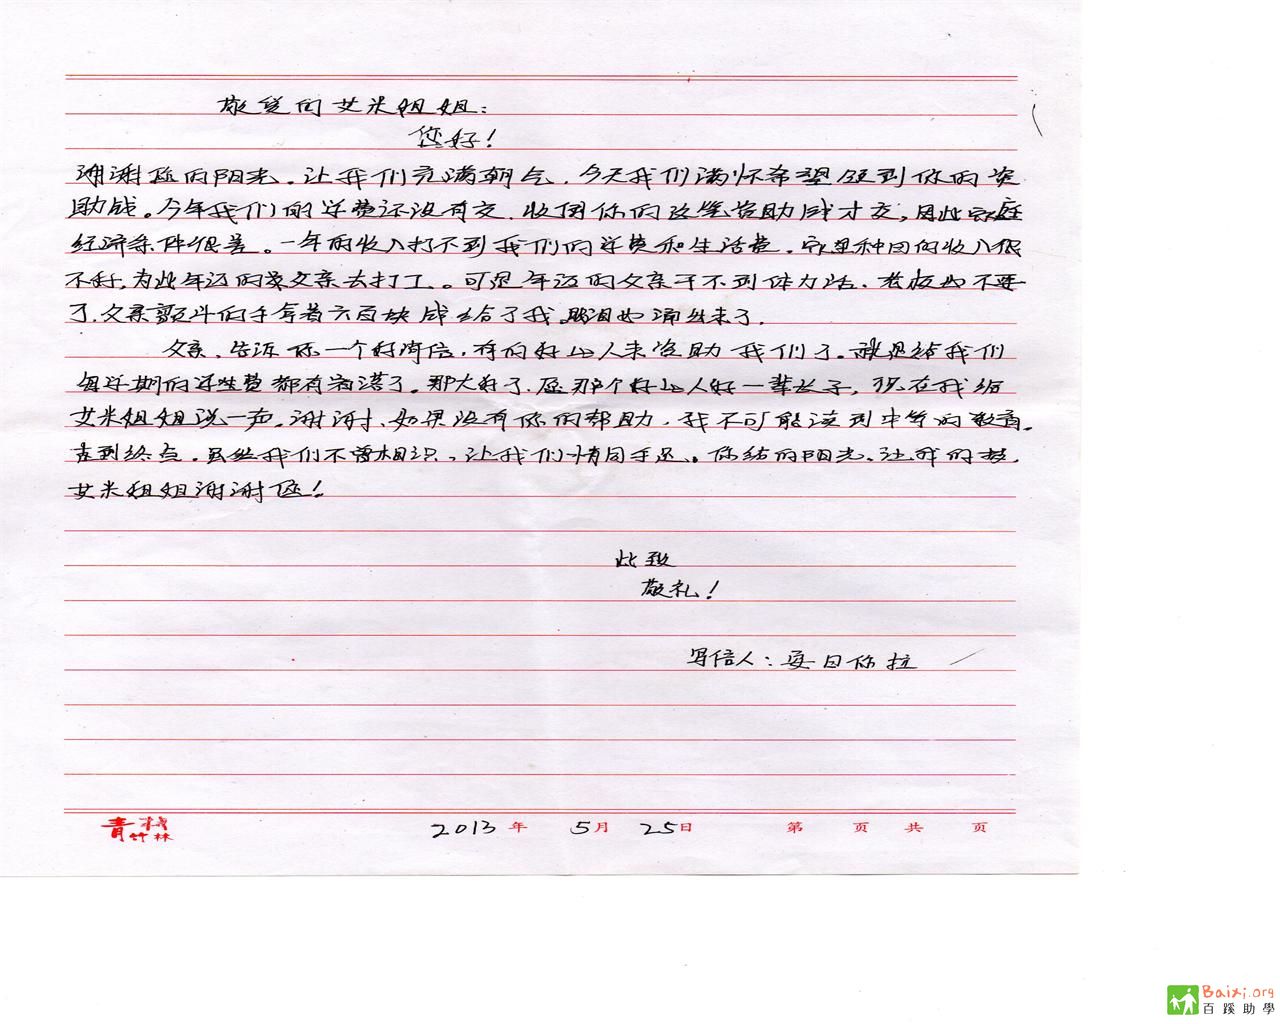 敬爱的艾米姐姐:
您好!
谢谢您的阳光。让我们充满朝气,今天我们满怀希望领到你的资
助钱。今年我们的学费还没有交,收到你的这笔资助钱才交,因此家庭
经济条件很差。一年的收入打不到我们的学费和生活费,家里种田的收入很
不好,为此年迈的父亲去打工。可是年迈的父亲干不到体力活,老板也不要
了,父亲颤抖的手拿着六百块钱给了我,眼泪也涌出来了,
父亲、告诉你一个好消信,有的好心人来资助我们了。就是给我们
每学期的学生费都有着落了。那太好了,愿那个好心人好一辈长子,现在我给
艾米姐姐说一声,谢谢、如果没有你的帮助,我不可能读到中等的教育。
走到终点。虽然我们不曾相识,让我们情同手足。你给的阳光,让我的梦,
艾米姐姐谢谢您!
此致
敬礼!
写信人:日你拉
2013年 5月 25日 第 页 共 页
青竹林
Baixi.org
百蹊助學